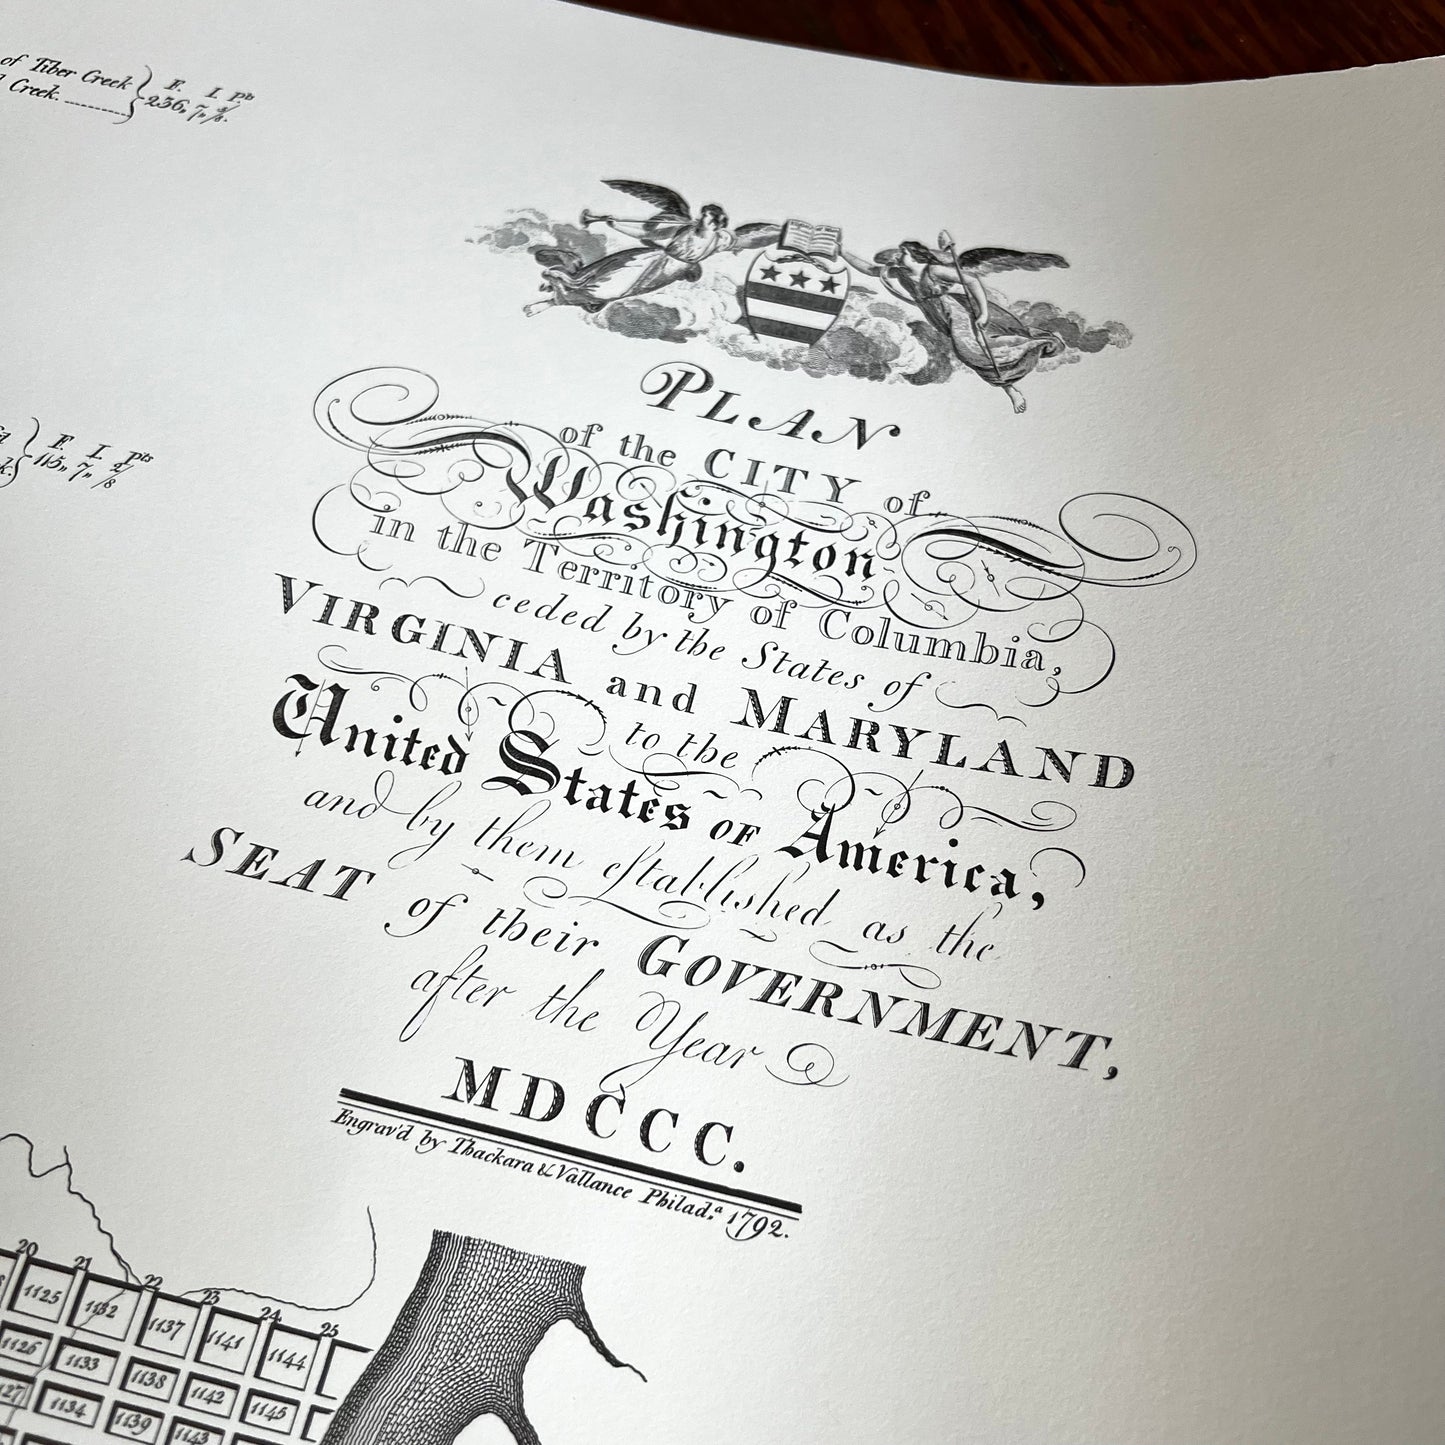 of Tiber Creek } F. I. Pts
Creek. 236, 7, /8.
F. I. pts
115, 7, /8
PLAN
of the CITY of
Washington
in the Territory of Columbia,
ceded by the States of
VIRGINIA and MARYLAND
to the
United States of America,
and by them eſtabliſhed as the
SEAT of their GOVERNMENT,
after the Year
MDCCC.
Engrav'd by Thackara & Vallance Philad.ª 1792.
20 21 22 23 24 25
1125 1132 1137 1141 1144
1126 1133 1138 1142 1145
1134 1139 1143